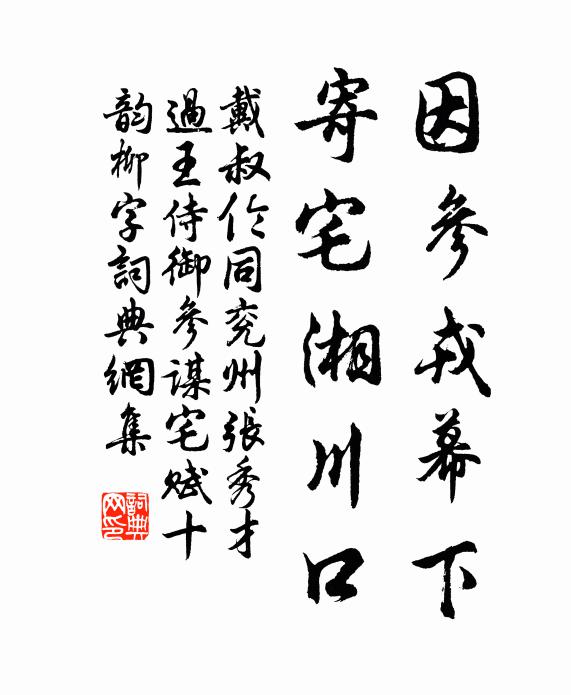 因參戎幕下
寄宅湘川口
戴叔伦同兖州張秀才
過王侍御參謀宅賦十
韵柳字詞典網集
詞典网印